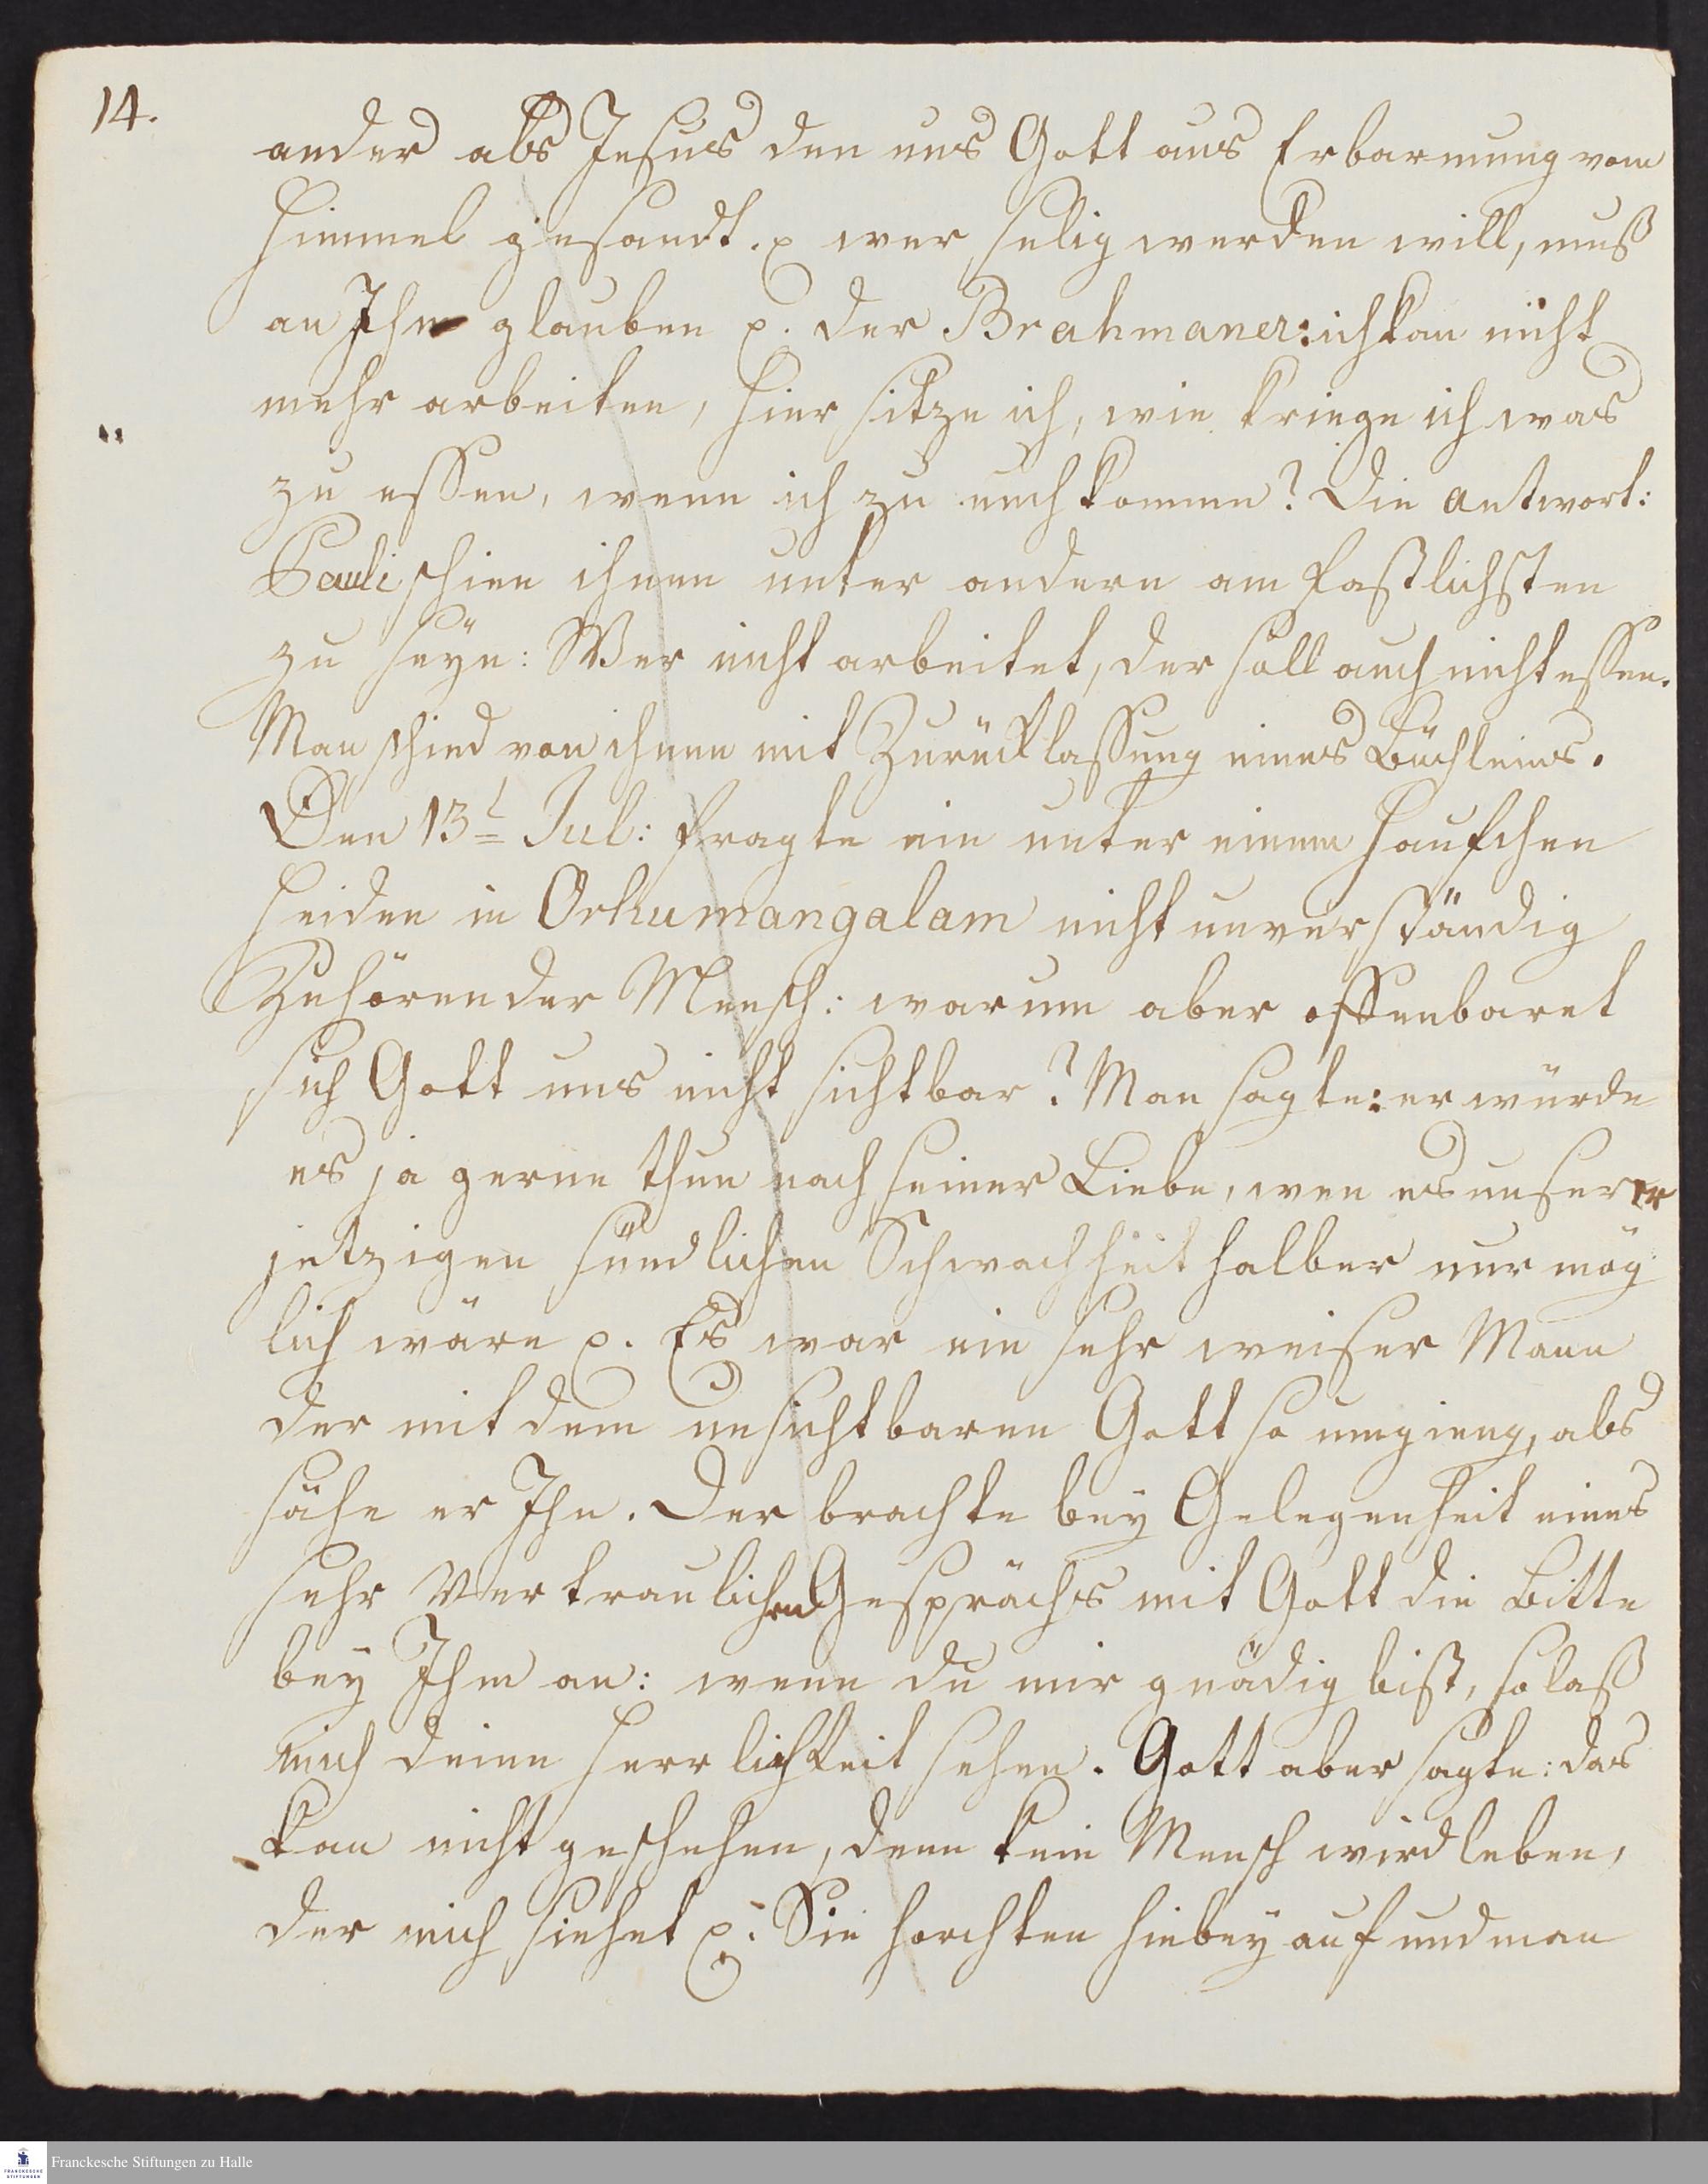 14.
ander als Jesus den uns Gott aus Erbarmung vom
Himmel gesandt. p wer selig werden will, muß
an Ihn glauben p. der Brahmaner: ich kan nicht
mehr arbeiten, hier sitze ich, wie kriege ich was
zu essen, wenn ich zu euch komme? Die Antwort:
Pauli schien ihnen unter andern am faßlichsten
zu seyn: Wer nicht arbeitet, der soll auch nicht essen.
Man schied von ihnen mit Zurücklassung eines Büchleins.
Den 13t Jul: fragte ein unter einem Haufchen
Heiden in Orhumangalam nicht unverständig
Zuhörender Mensch: warum aber offenbaret
sich Gott uns nicht sichtbar? Man sagte: er würde
es ja gerne thun nach seiner Liebe, wen es unserer
jetzigen sündlichen Schwachheit halber nur mög
lich wäre p. Es war ein sehr weiser Mann
der mit dem unsichtbaren Gott so umgieng, als
sähe er Ihn. Der brachte bey Gelegenheit eines
sehr vertraulichen Gesprächs mit Gott die Bitte
bey Ihm an: wenn du mir gnädig bist, so laß
mich deine Herrlichkeit sehen. Gott aber sagte: das
kan nicht geschehen, denn kein Mensch wird leben,
der mich siehet p. Sie horchten hiebey auf und man
Franckesche Stiftungen zu Halle